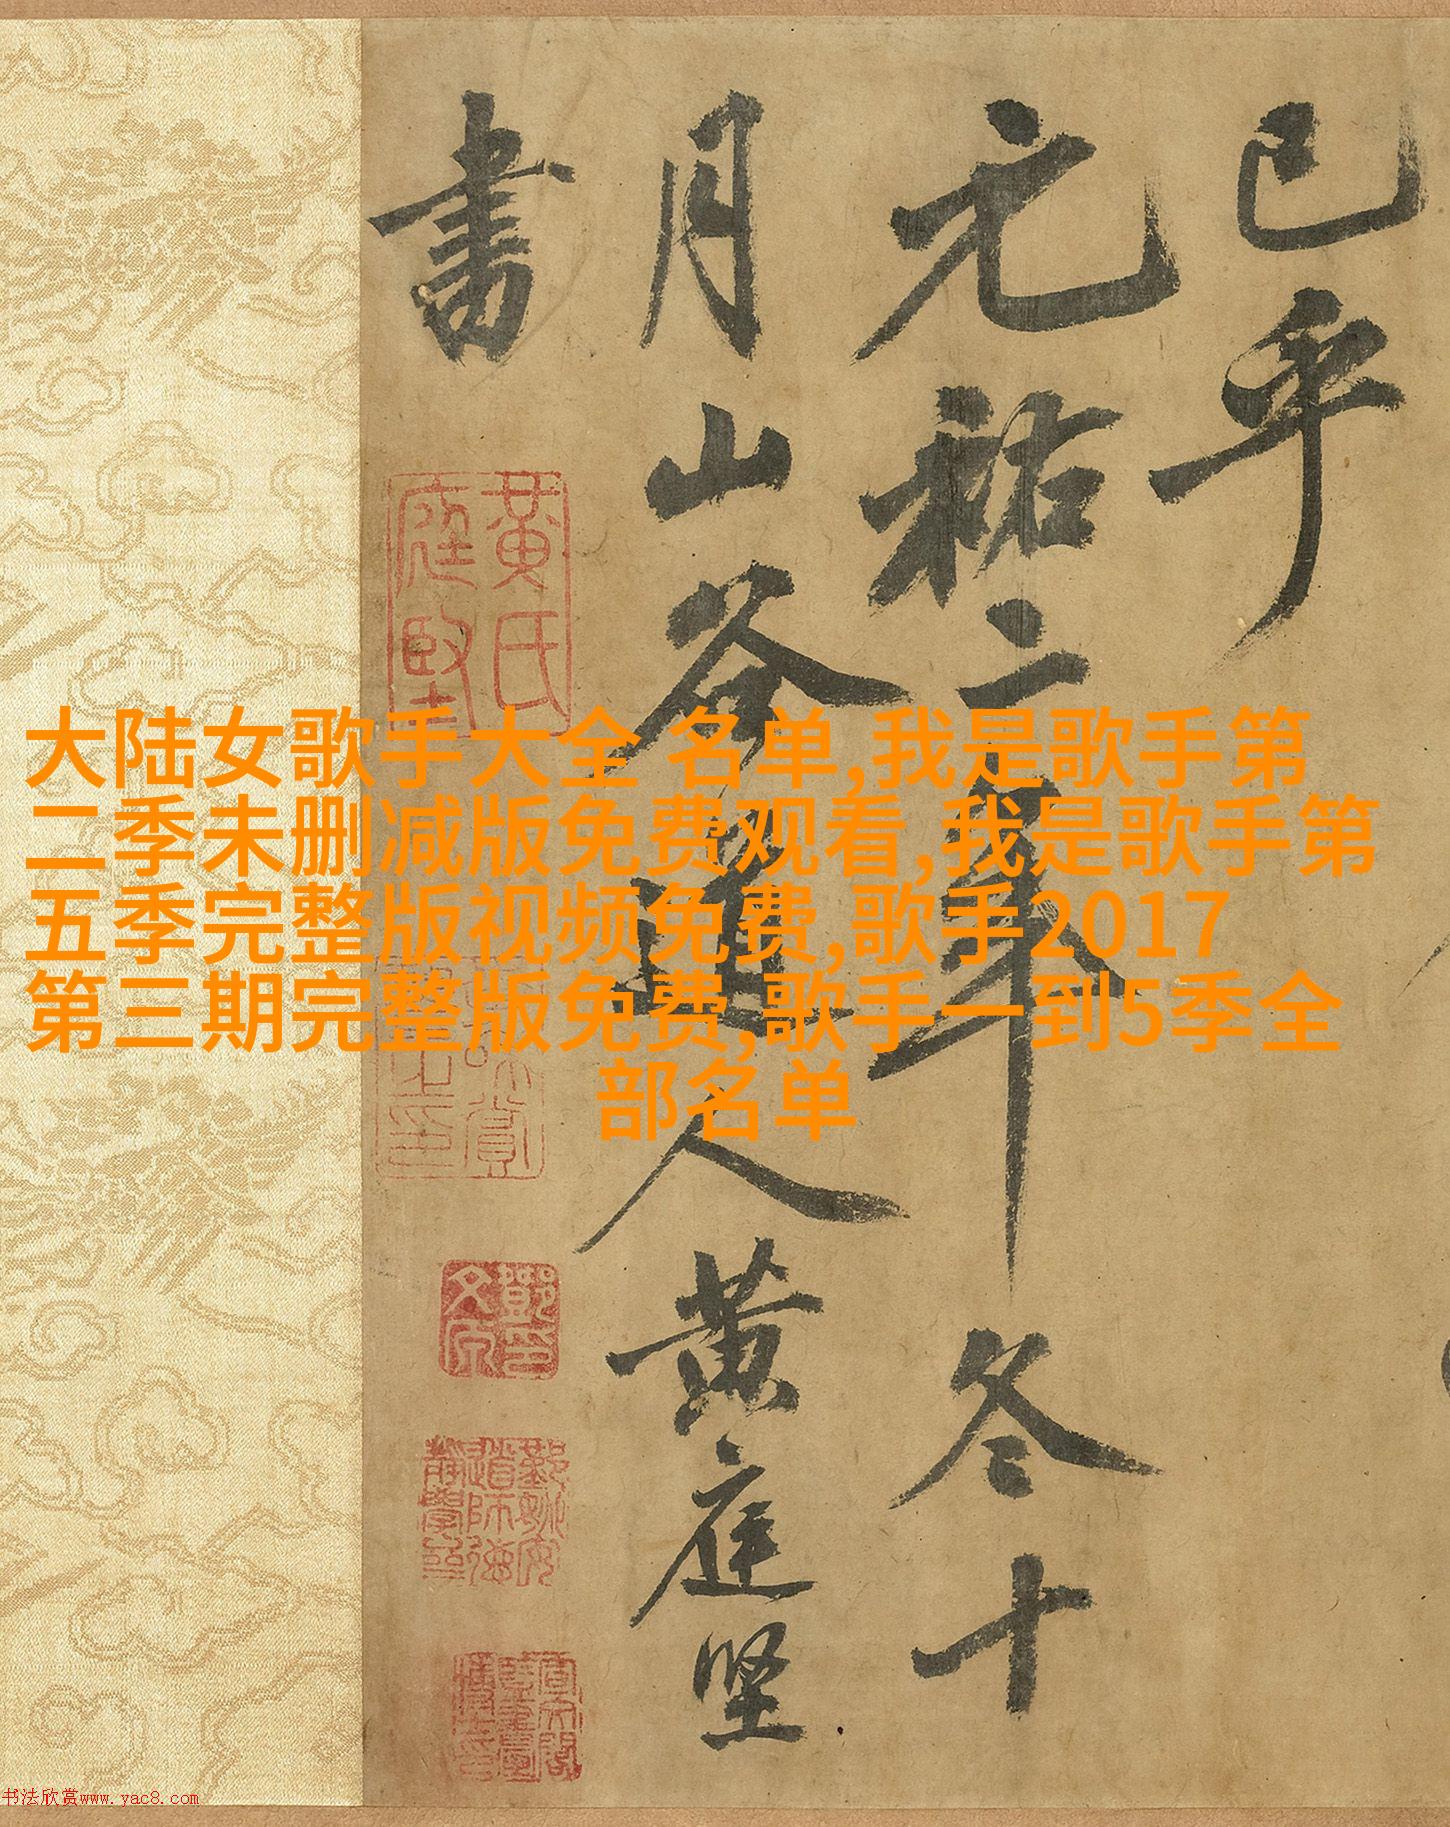 已乎
元祐二年冬十
月山谷道人黄庭坚
書
黄氏
庭堅
大陆女歌手大全 名单,我是歌手第
二季未删减版免费观看,我是歌手第
五季完整版视频免费,歌手2017
第三期完整版免费,歌手一到5季全
部名单
书法欣赏www.yac8.com